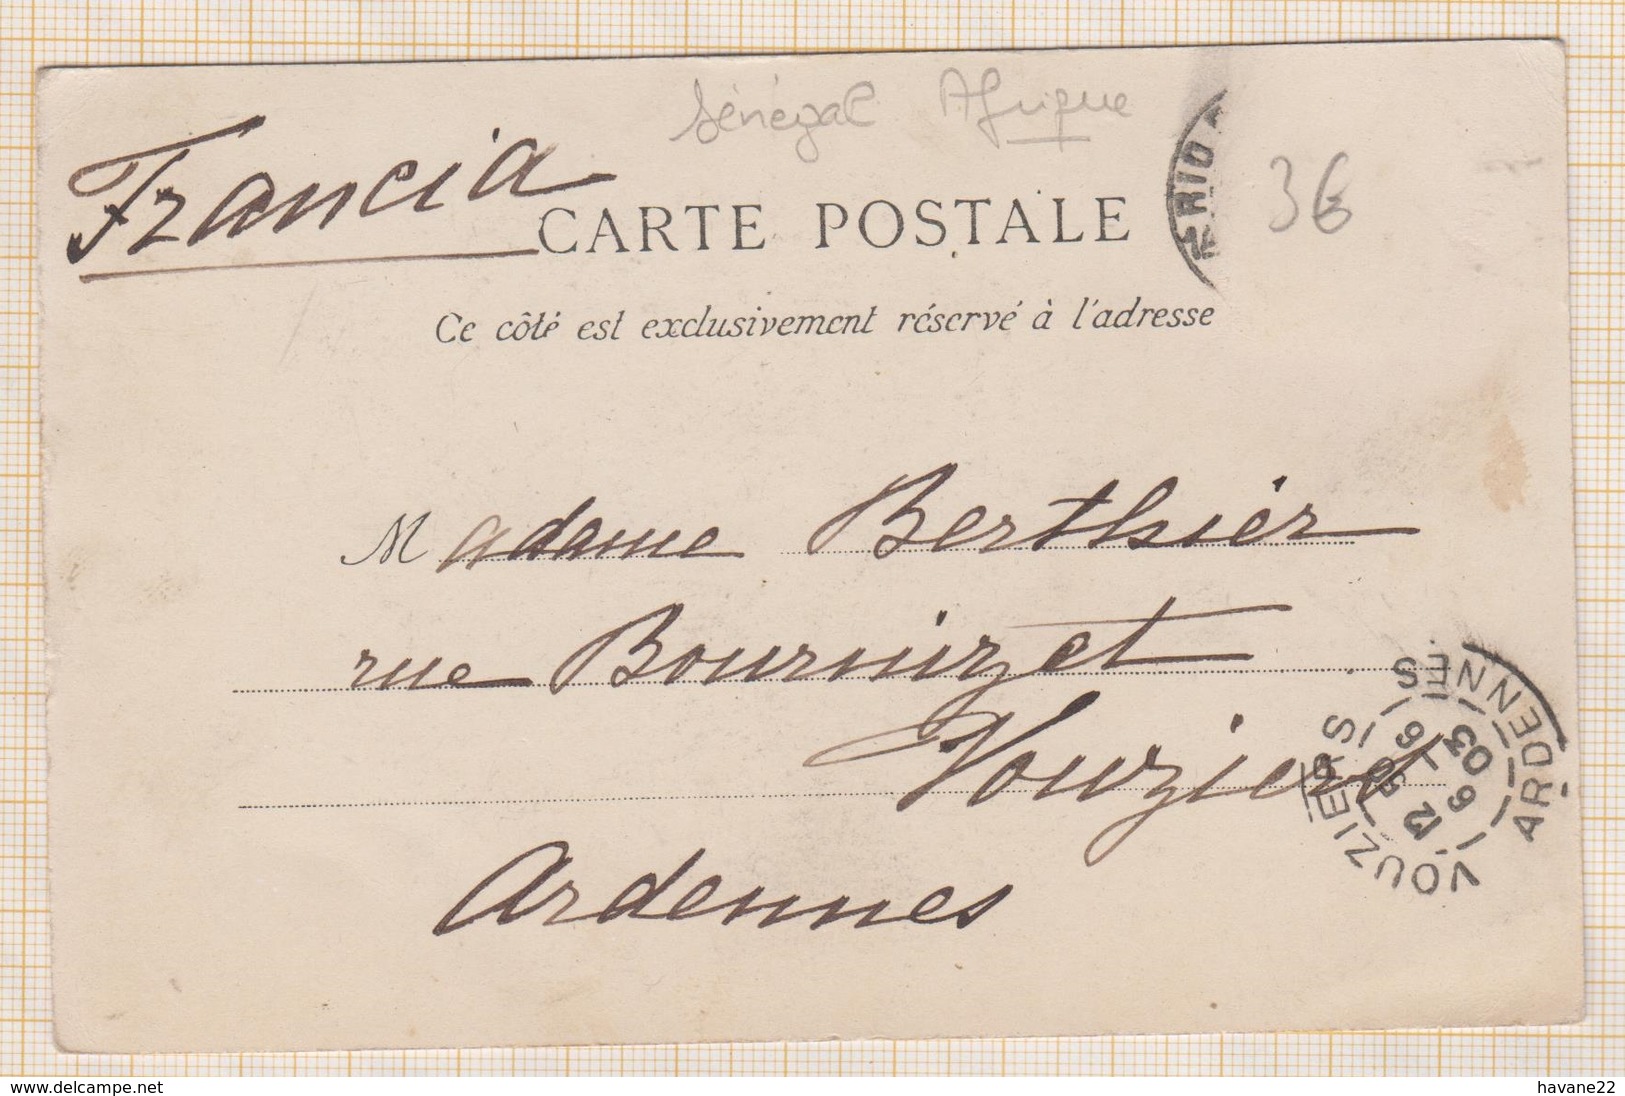 Sénégal Afrique
Francia
CARTE POSTALE
3€
Ce côté est exclusivement réservé à l'adresse
Madame Berthier
rue Bournizet
Vouziers
Ardennes
VOUZIERS ARDENNES
6 03
www.delcampe.net
havane22